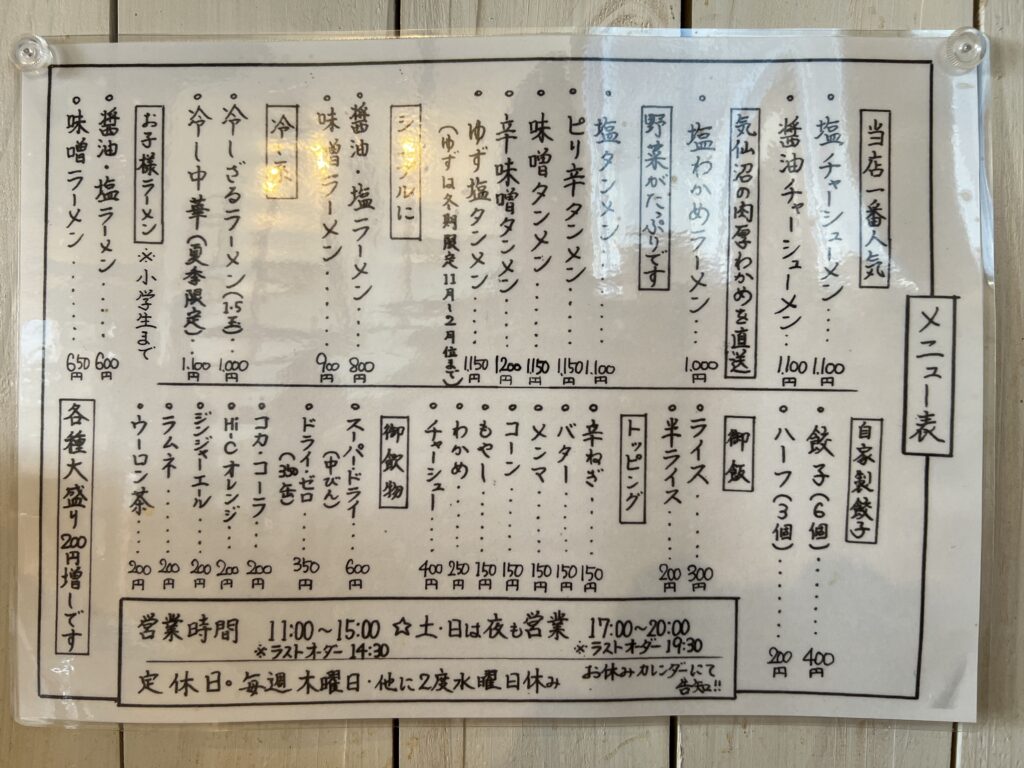 メニュー表
当店一番人気
・塩チャーシューメン・・・1.100円
・醤油チャーシューメン・・・1.100円
気仙沼の肉厚わかめを直送
・塩わかめラーメン・・・1.000円
野菜がたっぷりです
・塩タンメン・・・1.100円
・ピリ辛タンメン・・・1.150円
・味噌タンメン・・・1.150円
・辛味噌タンメン・・・1200円
・ゆず塩タンメン・・・1.150円
(ゆずは冬期限定11月〜2月位まで)
シンプルに
・醤油・塩ラーメン・・・800円
・味噌ラーメン・・・900円
冷
・冷しざるラーメン(1.5玉)・・・1.000円
・冷し中華(夏季限定)・・・1.100円
お子様ラーメン ※小学生まで
・醤油・塩ラーメン・・・600円
・味噌ラーメン・・・650円
自家製餃子
・餃子(6個)・・・400円
・ハーフ(3個)・・・200円
御飯
・ライス・・・300円
・半ライス・・・200円
トッピング
・辛ねぎ・・・150円
・バター・・・150円
・メンマ・・・150円
・コーン・・・150円
・もやし・・・150円
・わかめ・・・250円
・チャーシュー・・・400円
御飲物
・スーパードライ(中びん)・・・600円
・ドライ・ゼロ(350缶)・・・350円
・コカ・コーラ・・・200円
・Hi-Cオレンジ・・・200円
・ジンジャーエール・・・200円
・ラムネ・・・200円
・ウーロン茶・・・200円
各種大盛り200円増しです
営業時間 11:00〜15:00 ☆土・日は夜も営業 17:00〜20:00
※ラストオーダー 14:30 ※ラストオーダー 19:30
定休日。毎週木曜日・他に2度水曜日休み お休みカレンダーにて告知!!